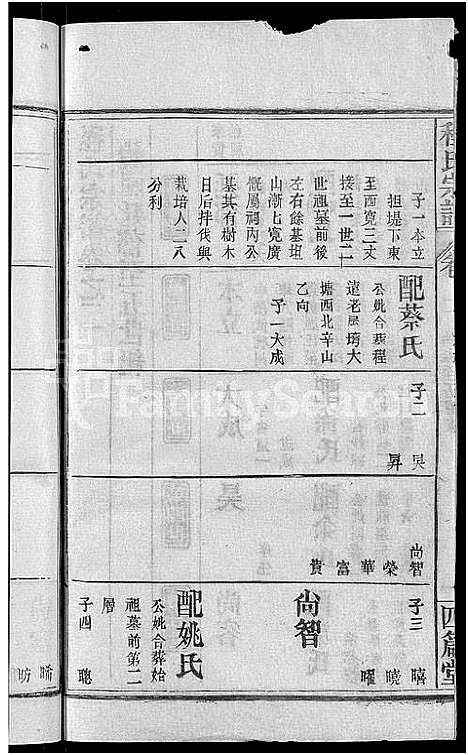 程氏宗譜
四箴堂
子一本立
担堤下東
至西寬三丈
接至一世二
世祖墓前後
左右餘基坦
山漸匕寬廣
慨屬祠內公
基其有樹木
日后拌伐與
栽培人二八
分利
配蔡氏
公妣合葬程
遠老屋塆大
塘西北辛山
乙向
子一大成
子二 昊
昇
尚智
榮
華
富
貴
子三 曦
曉
曜
尚智
配姚氏
公妣合葬始
祖墓前第二
層
子四 聰
晞
昉
FamilySearch